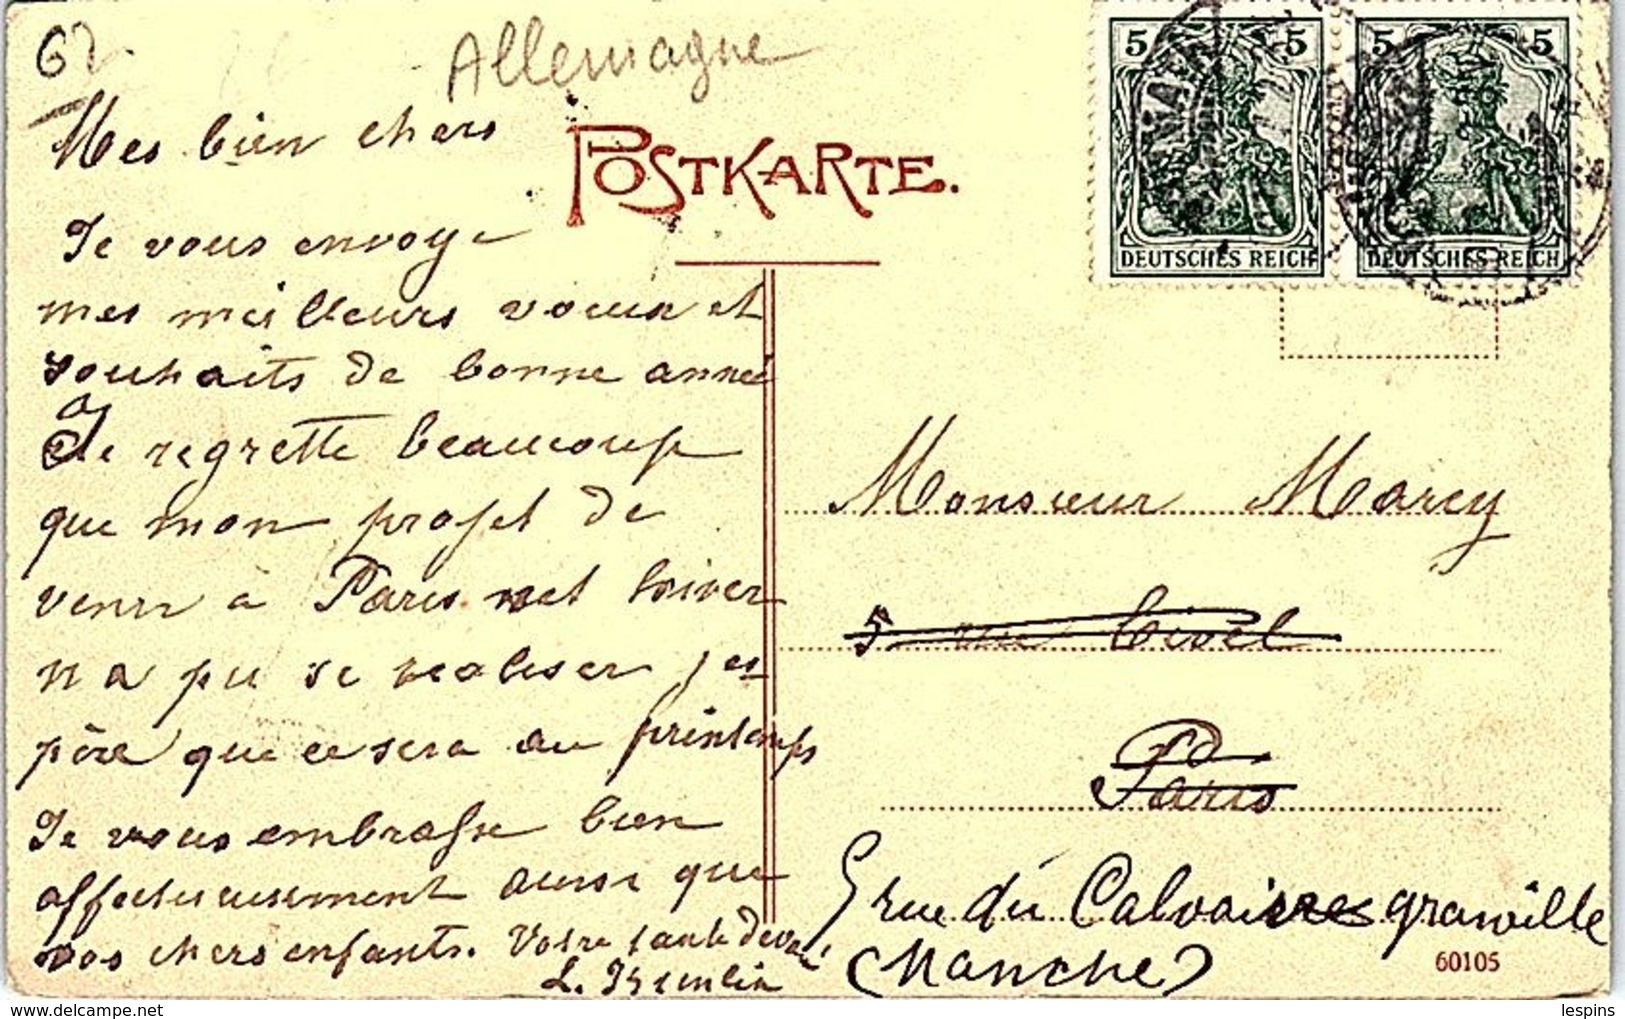 62
Allemagne
Mes bien chers
POSTKARTE.
Je vous envoye
mes meilleurs voeux et
souhaits de bonne année
Je regrette beaucoup
que mon projet de
venir à Paris cet hiver
n a pu se realiser j es
père que ce sera au printemps
Je vous embrasse bien
affectueusement ainsi que
vos chers enfants. Votre tante devoué
L.
5 5
DEUTSCHES REICH
5 5
DEUTSCHES REICH
Monsieur Marcy
5 rue
Paris
5 rue du Calvaire granville
(Manche)
60105
© www.delcampe.net
lespins